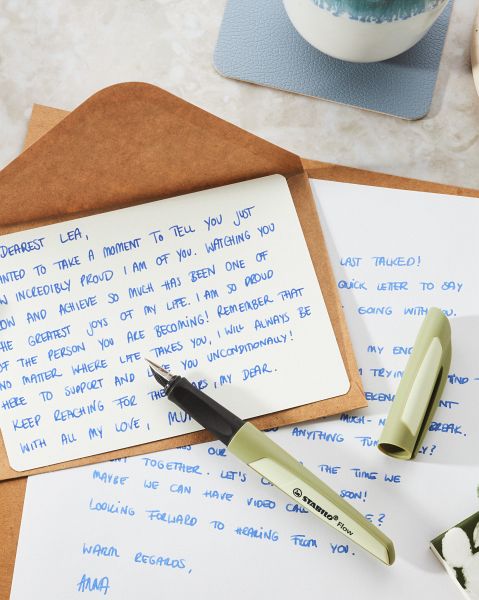 DEAREST LEA,
WANTED TO TAKE A MOMENT TO TELL YOU JUST
INCREDIBLY PROUD I AM OF YOU. WATCHING YOU
AND ACHIEVE SO MUCH HAS BEEN ONE OF
THE GREATEST JOYS OF MY LIFE. I AM SO PROUD
OF THE PERSON YOU ARE BECOMING! REMEMBER THAT
NO MATTER WHERE LIFE TAKES YOU, I WILL ALWAYS BE
HERE TO SUPPORT AND YOU UNCONDITIONALLY!
KEEP REACHING FOR THE , MY DEAR.
WITH ALL MY LOVE,
LAST TALKED!
QUICK LETTER TO SAY
GOING WITH YOU.
MY
TRYING
BREAK.
ANYTHING
TOGETHER. LET'S THE TIME WE
MAYBE WE CAN HAVE VIDEO SOON!
LOOKING FORWARD TO HEARING FROM YOU.
WARM REGARDS,
ANNA
STABILO® Flow